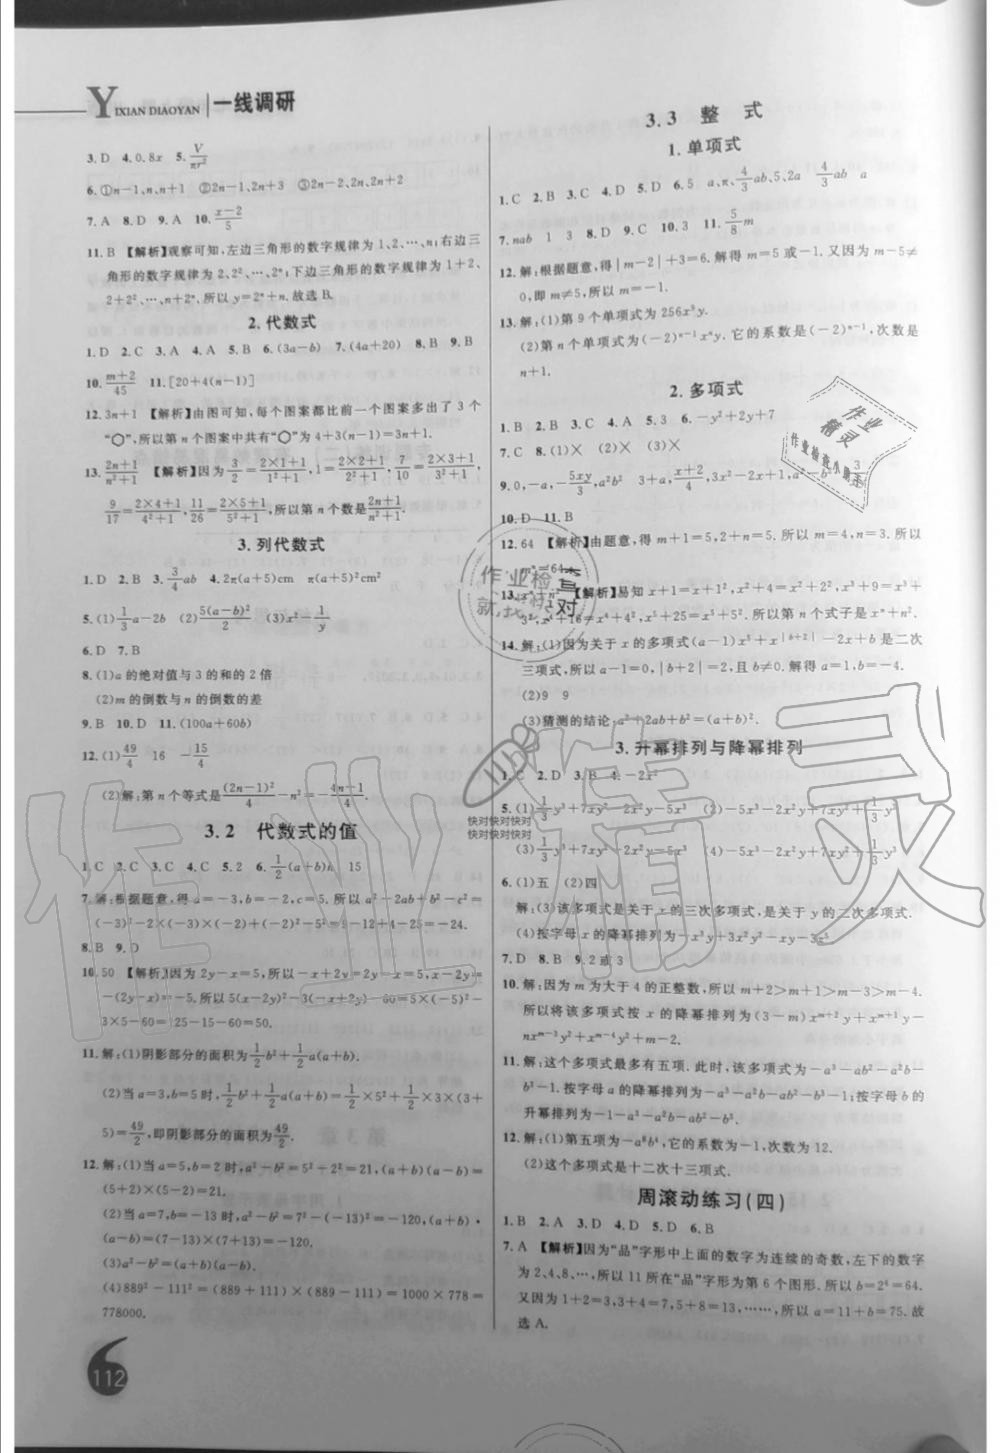 YIXIAN DIAOYAN 一线调研
3.D 4.0.8x 5.V/πr²
6.①n-1、n、n+1 ②2n-1、2n+3 ③2n-2、2n、2n+2
7.A 8.D 9.A 10.(x-2)/5
11.B 【解析】观察可知,左边三角形的数字规律为1、2、…、n;右边三
角形的数字规律为2、2²、…、2ⁿ;下边三角形的数字规律为1+2、
2+2²、…、n+2ⁿ.所以y=2ⁿ+n.故选B.
2.代数式
1.D 2.C 3.A 4.A 5.B 6.(3a-b) 7.(4a+20) 8.B 9.B
10.(m+2)/45 11.[20+4(n-1)]
12.3n+1 【解析】由图可知,每个图案都比前一个图案多出了3个
“⬡”,所以第n个图案中共有“⬡”为4+3(n-1)=3n+1.
13.(2n+1)/(n²+1) 【解析】因为3/2=(2×1+1)/(1²+1),5/5=(2×2+1)/(2²+1),7/10=(2×3+1)/(3²+1),
9/17=(2×4+1)/(4²+1),11/26=(2×5+1)/(5²+1),所以第n个数是(2n+1)/(n²+1).
3.列代数式
1.D 2.B 3.3/4ab 4.2π(a+5)cm π(a+5)²cm²
5.(1)1/3a-2b (2)5(a-b)²/2 (3)x²-1/y
6.D 7.B
8.(1)a的绝对值与3的和的2倍
(2)m的倒数与n的倒数的差
9.B 10.D 11.(100a+60b)
12.(1)49/4 16 -15/4
(2)解:第n个等式是(2n-1)²/4-n²=-(4n-1)/4.
3.2 代数式的值
1.C 2.C 3.C 4.C 5.2 6.1/2(a+b)h 15
7.解:根据题意,得a=-3,b=-2,c=5.所以a²-2ab+b²-c²=
(-3)²-2×(-3)×(-2)+(-2)²-5²=9-12+4-25=-24.
8.B 9.D
10.50 【解析】因为2y-x=5,所以-x+2y=2y-x=5,x-2y=
-(2y-x)=-5.所以5(x-2y)²-3(-x+2y)-60=5×(-5)²-
3×5-60=125-15-60=50.
11.解:(1)阴影部分的面积为1/2b²+1/2a(a+b).
(2)当a=3,b=5时,1/2b²+1/2a(a+b)=1/2×5²+1/2×3×(3+
5)=49/2,即阴影部分的面积为49/2.
12.解:(1)当a=5,b=2时,a²-b²=5²-2²=21,(a+b)(a-b)=
(5+2)×(5-2)=21.
(2)当a=7,b=-13时,a²-b²=7²-(-13)²=-120,(a+b)·
(a-b)=(7-13)×(7+13)=-120.
(3)a²-b²=(a+b)(a-b).
(4)889²-111²=(889+111)×(889-111)=1000×778=
778000.
112
3.3 整 式
1.单项式
1.C 2.B 3.C 4.D 5.D 6.5 a、π、4/3ab、5、2a 4/3ab a
7.nab 1 3 8.D 9.C 10.3 11.5/8m
12.解:根据题意,得|m-2|+3=6.解得m=5或-1.又因为m-5≠
0,即m≠5,所以m=-1.
13.解:(1)第9个单项式为256x⁹y.
(2)第n个单项式为(-2)ⁿ⁻¹xⁿy,它的系数是(-2)ⁿ⁻¹,次数是
n+1.
2.多项式
1.B 2.B 3.C 4.A 5.3 6.-y²+2y+7
7.C 8.(1)× (2)× (3)×
9.0,-a,-5xy/3,a²b² 3+a,(x+2)/4,3x²-2x+1,a²-b²
10.D 11.B
12.64 【解析】由题意,得m+1=5,2+n=5.所以m=4,n=3.所以
mⁿ=64.
13.xⁿ+n² 【解析】易知x+1=x+1²,x²+4=x²+2²,x³+9=x³+
3²,x⁴+16=x⁴+4²,x⁵+25=x⁵+5².所以第n个式子是xⁿ+n².
14.解:(1)因为关于x的多项式(a-1)x⁵+x^|b+2|-2x+b是二次
三项式,所以a-1=0,|b+2|=2,且b≠0.解得a=1,b=-4.
(2)9 9
(3)猜测的结论:a²+2ab+b²=(a+b)².
3.升幂排列与降幂排列
1.C 2.D 3.B 4.-2x²
5.(1)1/3y³+7xy²-2x²y-5x³ (2)-5x³-2x²y+7xy²+1/3y³
(3)1/3y³+7xy²-2x²y-5x³ (4)-5x³-2x²y+7xy²+1/3y³
6.(1)五 (2)四
解:(3)该多项式是关于x的三次多项式,是关于y的三次多项式.
(4)按字母x的降幂排列为-x³y+3x²y²-xy-3x³
7.D 8.B 9.2或3
10.解:因为m为大于4的正整数,所以m+2>m+1>m-3>m-4.
所以将该多项式按x的降幂排列为(3-m)x^(m+2)y+x^(m+1)y-
nx^(m-3)y²+x^(m-4)y²-m+2.
11.解:这个多项式最多有五项.此时,该多项式为-a³-ab²-a²b-
b³-1.按字母a的降幂排列为-a³-a²b-ab²-b³-1;按字母b的
升幂排列为-1-a³-a²b-ab²-b³.
12.解:(1)第五项为-a⁸b⁴,它的系数为-1,次数为12.
(2)这个多项式是十二次十三项式.
周滚动练习(四)
1.B 2.A 3.D 4.D 5.D 6.B
7.A 【解析】因为“品”字形中上面的数字为连续的奇数,左下的数字
为2、4、8、…,所以11所在“品”字形为第6个图形.所以b=2⁶=64.
又因为1+2=3,3+4=7,5+8=13,……,所以a=11+b=75.故
选A.
作业精灵
作业检查小助手
作业检查
就找快对
快对快对快对
快对快对快对
作业精灵